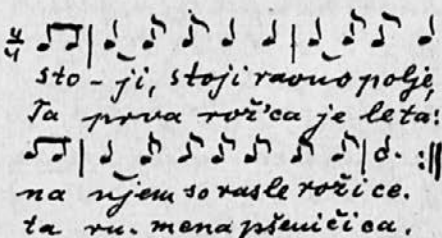 4/4
sto-ji, stoji ravno polje,
Ta prva rož'ca je leta:
na njem so rasle rožice.
ta ru-mena pšeničica.